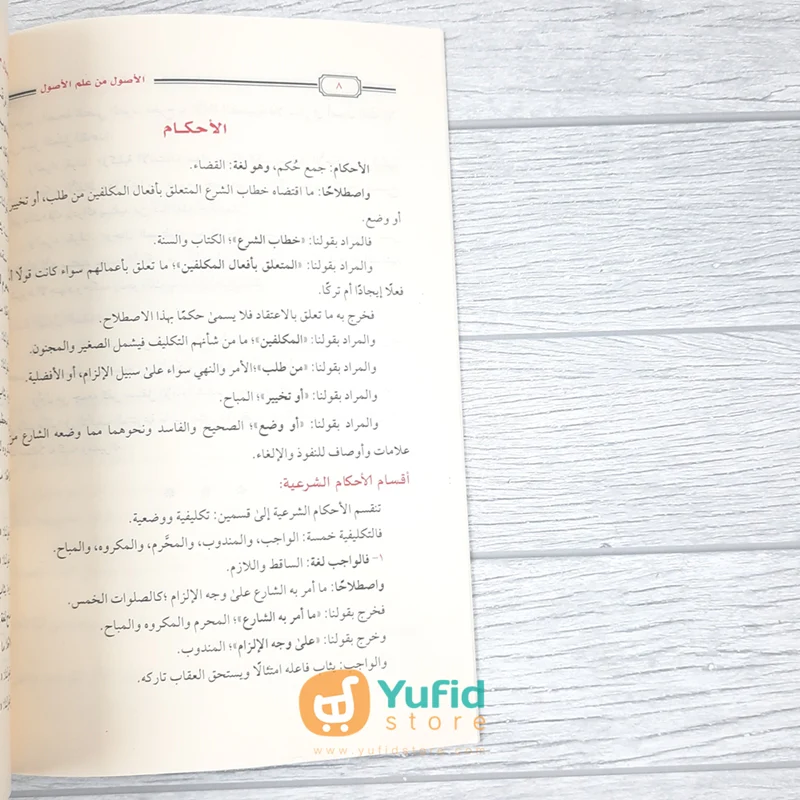 ٨
الأصول من علم الأصول
الأحكام
الأحكام: جمع حُكم، وهو لغة: القضاء.
واصطلاحًا: ما اقتضاه خطاب الشرع المتعلق بأفعال المكلفين من طلب، أو تخيير
أو وضع.
فالمراد بقولنا: «خطاب الشرع»؛ الكتاب والسنة.
والمراد بقولنا: «المتعلق بأفعال المكلفين»؛ ما تعلق بأعمالهم سواء كانت قولًا
فعلًا إيجادًا أم تركًا.
فخرج به ما تعلق بالاعتقاد فلا يسمى حكمًا بهذا الاصطلاح.
والمراد بقولنا: «المكلفين»؛ ما من شأنهم التكليف فيشمل الصغير والمجنون.
والمراد بقولنا: «من طلب»؛ الأمر والنهي سواء على سبيل الإلزام، أو الأفضلية.
والمراد بقولنا: «أو تخيير»؛ المباح.
والمراد بقولنا: «أو وضع»؛ الصحيح والفاسد ونحوهما مما وضعه الشارع
علامات وأوصاف للنفوذ والإلغاء.
أقسام الأحكام الشرعية:
تنقسم الأحكام الشرعية إلى قسمين: تكليفية ووضعية.
فالتكليفية خمسة: الواجب، والمندوب، والمحرَّم، والمكروه، والمباح.
١- فالواجب لغة: الساقط واللازم.
واصطلاحًا: ما أمر به الشارع على وجه الإلزام ؛كالصلوات الخمس.
فخرج بقولنا: «ما أمر به الشارع»؛ المحرم والمكروه والمباح.
وخرج بقولنا: «على وجه الإلزام»؛ المندوب.
والواجب: يثاب فاعله امتثالًا ويستحق العقاب تاركه.
Yufid
store
www.yufidstore.com